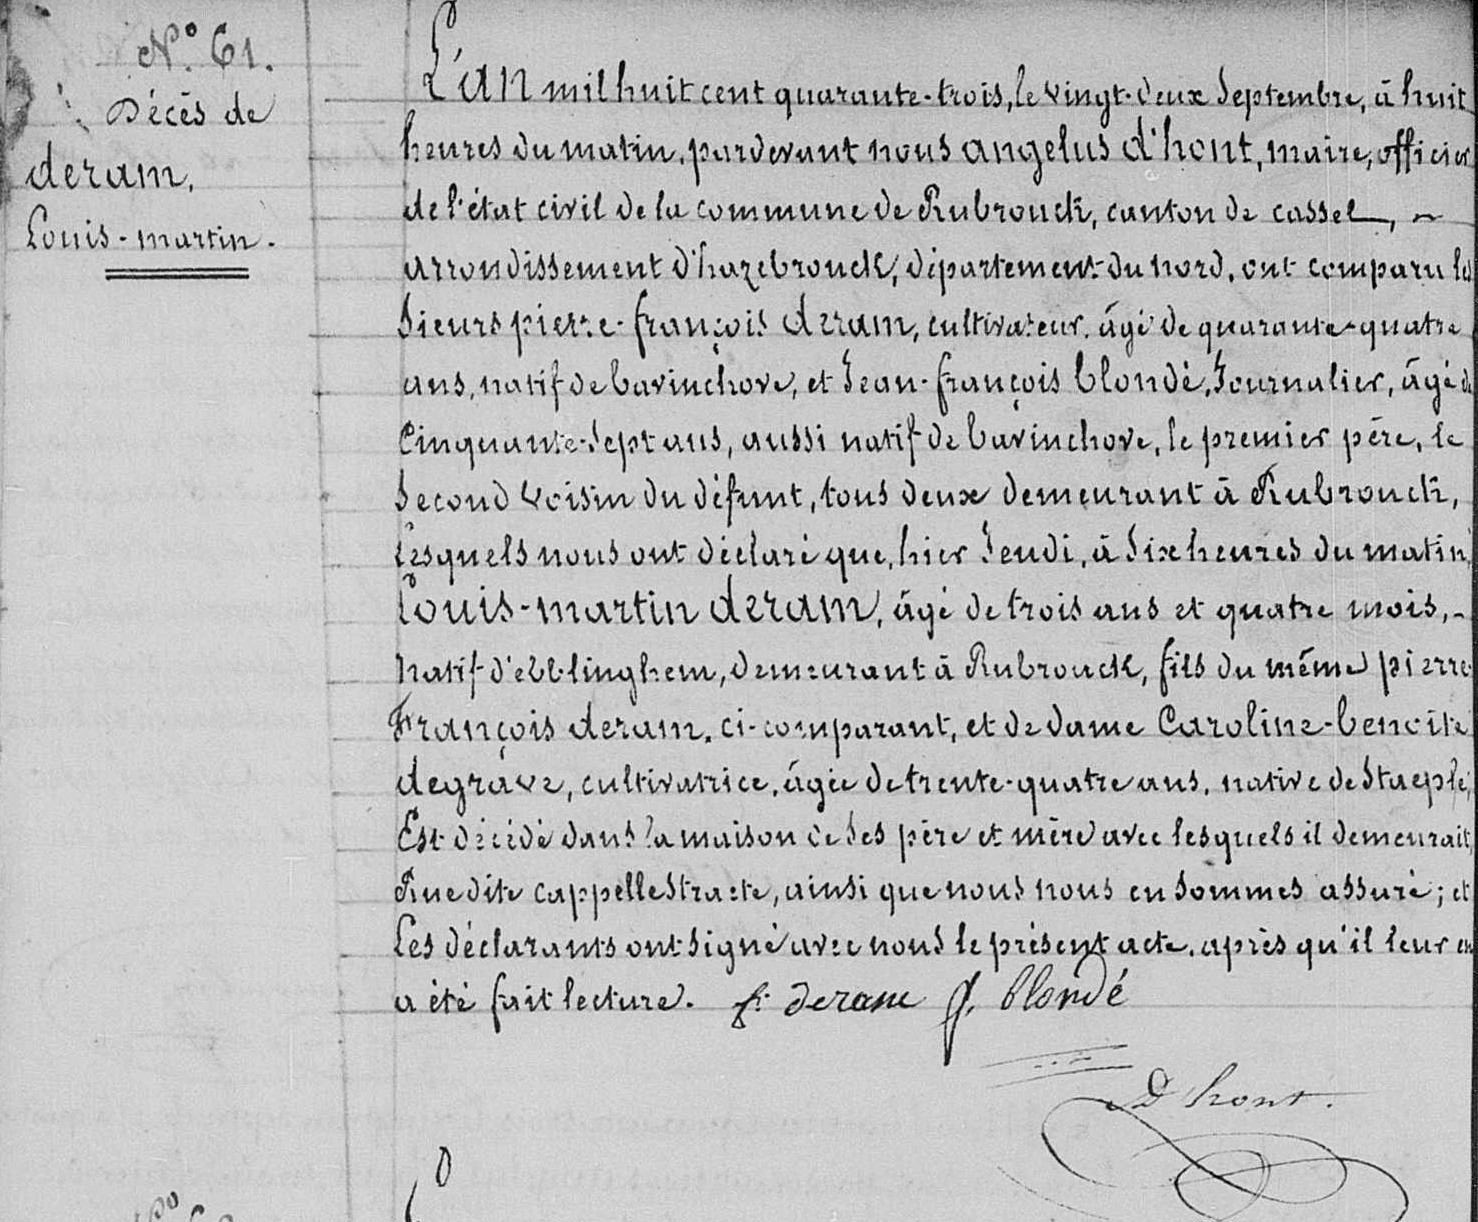 N.° 61.
Décès de
deram,
Louis-martin.
L'an mil huit cent quarante-trois, le vingt-deux Septembre, à huit
heures du matin, pardevant nous angelus d'hont, maire, officier
de l'état civil de la commune de Rubrouck, canton de cassel, ~
arrondissement d'hazebrouck, département du nord, ont comparu les
Sieurs pierre-françois deram, cultivateur, âgé de quarante-quatre
ans, natif de bavinchove, et Jean-françois blondé, Journalier, âgé de
Cinquante-Sept ans, aussi natif de bavinchove, le premier père, le
Second voisin du défunt, tous deux demeurant à Rubrouck,
Lesquels nous ont déclaré que, hier Jeudi, à Six heures du matin,
Louis-martin deram, âgé de trois ans et quatre mois, -
natif d'ebblinghem, demeurant à Rubrouck, fils du même pierre-
François deram, ci-comparant, et de dame Caroline-benoite
degrave, cultivatrice, âgée de trente-quatre ans, native de Staple,
Est décédé dans la maison de Ses père et mère avec lesquels il demeurait,
Rue dite cappellestraete, ainsi que nous nous en Sommes assuré ; et
Les déclarants ont Signé avec nous le présent acte, après qu'il leur en
a été fait lecture. f: deram J. blondé
D hont.
N°